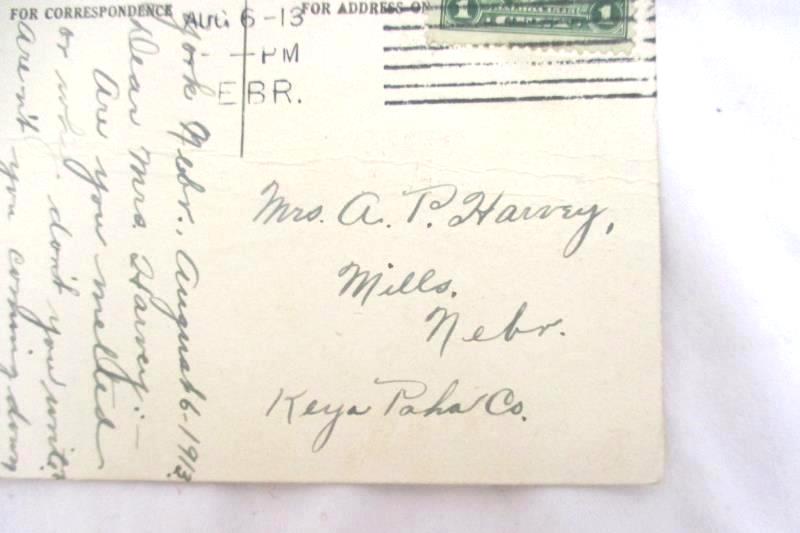 FOR CORRESPONDENCE
FOR ADDRESS ON
AUG 6 -13
PM
EBR.
1 1
York Nebr., August 6-1913
Dear Mrs. Harvey:-
Are you melted
or why don't you write
Aren't you coming down
Mrs. A. P. Harvey,
Mills,
Nebr.
Keya Paha Co.